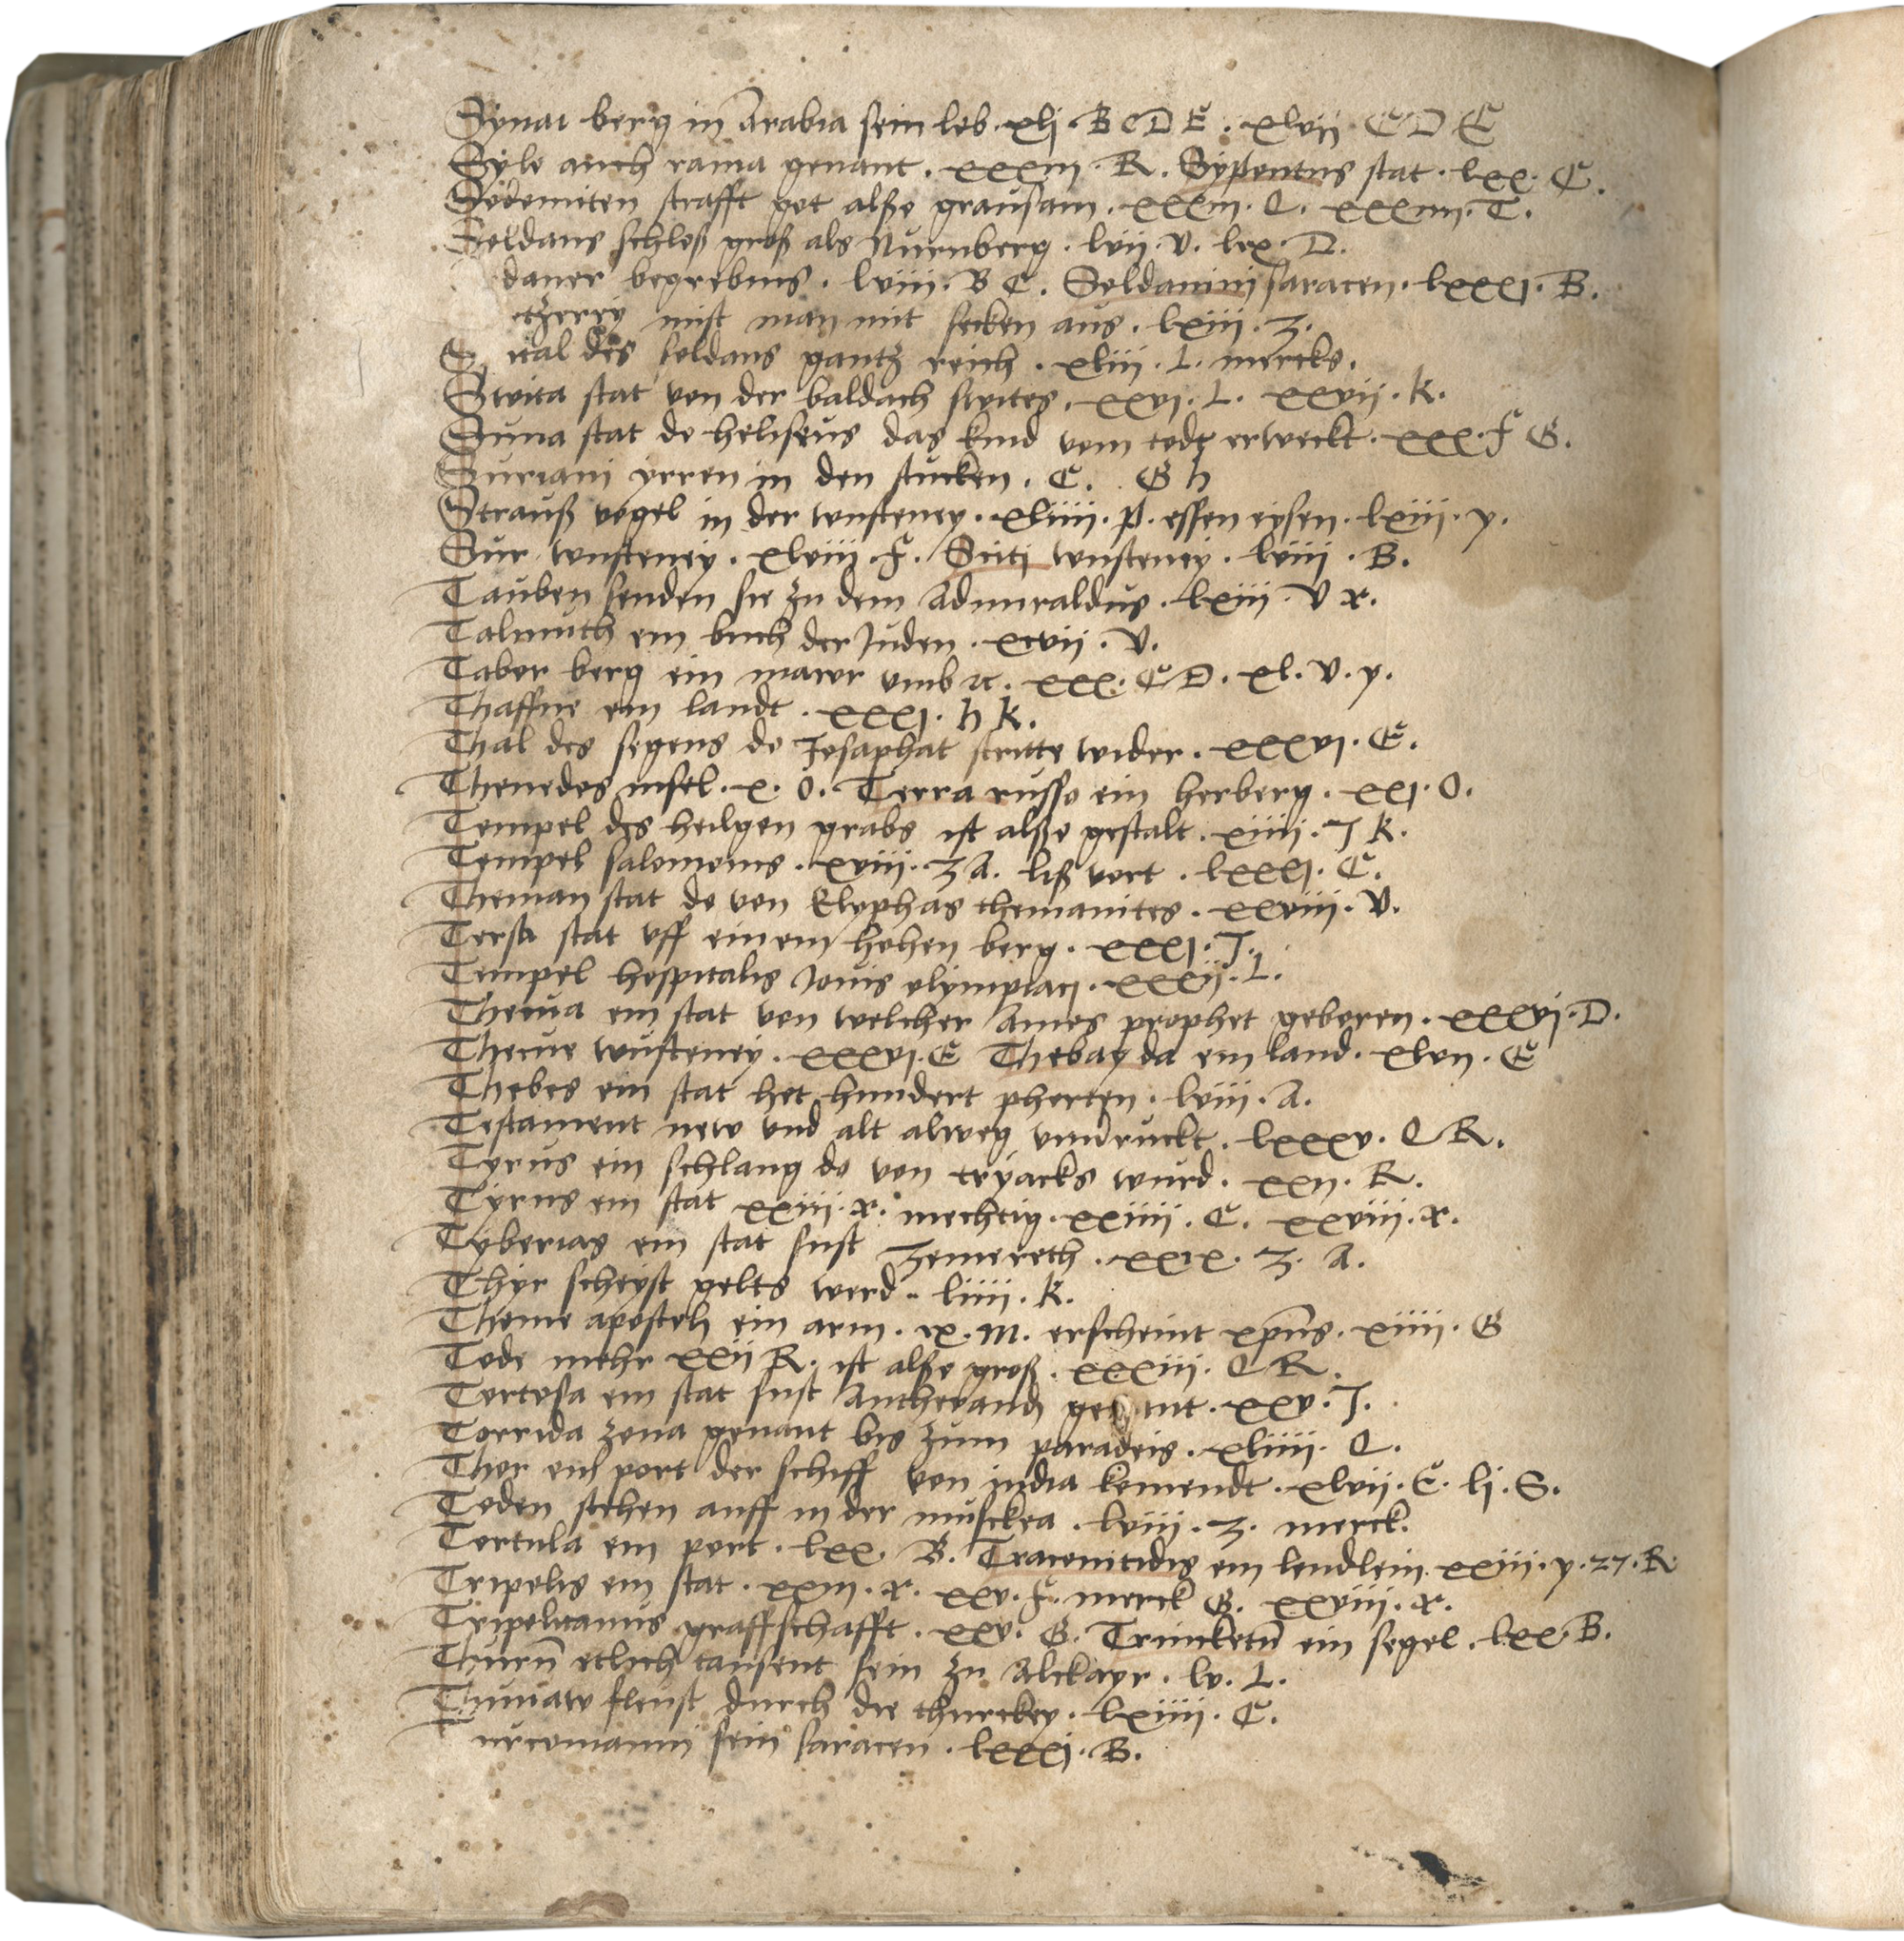 Synai berg in Arabia sein leb. xlj. B C D E. xlvij C D E
Sylo auch rama genant. xxxiii. R. Sypontus stat. lxx. C.
Sodomiten strafft got alsso grausam. xxxiii. Q. xxxiiii. T.
Soldans schloß groß als Nurnberg. lvii. V. lxx. D.
daner begrebnus. lviii. B C. Soldanini saracen. lxxxj. B.
mist man mit secken aus. lxiii. Z.
des soldans gantz reich. xliii. L. mercks.
Swita stat von der baldach swites. xxvj. L. xxvij. K.
Suna stat do heliseus das kind vom todt erweckt. xxx. F G.
Suriani yrren in den stucken. C. G h
Strauß vogel in der wusteney. xliiii. p. essen eysen. lxiii. y.
Sur wusteney. xlviii. F. Sciti wusteney. lviii. B.
Tauben senden sie zu dem Admiraldus. lxiii. V x.
Talmuth ein buch der Juden. xcvij. V.
Tabor berg ein mawr umb ꝛc. xxx. C D. xl. V. y.
Thaffne ein landt. xxxj. h K.
Thal des segens do Josaphat stritte wider. xxxvj. E.
Thenedos insel. x. O. Terra russo ein herberg. xxj. O.
Tempel des heilgen grabs ist alsso gestalt. xiiii. J K.
Tempel salomonis. xviii. Z A. liß vort. lxxxj. C.
Theman stat do von Elyphas themanites. xxviii. V.
Tersa stat uff einem hohen berg. xxxj. J.
Tempel hospitalis Jovis olimpiacj. xxxij. L.
Thecua ein stat von welcher Amos prophet geboren. xxxvj. D.
Thecue wusteney. xxxvj. E Thebayda ein land. xlvii. E
Thebes ein stat het hundert pforten. lviii. A.
Testament new und alt alweg verruckt. lxxxv. Q R.
Tyrus ein schlang do von tryacks wurd. xxii. R.
Tyrus ein stat xxiii. x. mechtig. xxiiii. C. xxviii. x.
Tyberias ein stat sust Zenereth. xxix. Z. A.
Thyr scheyst gelts werd. liiii. K.
Thome aposteln ein arm. ix. M. erscheint xpus. xiiii. G
Tode mehr xxij R. ist alsso groß. xxxiii. Q R.
Tortosa ein stat sust Antheranda genant. xxv. J.
Torrida zona genant bis zum paradeis. xliiii. Q.
Thor ein port der schiff von india komendt. xlvij. E. lj. S.
Toden stehen auff in der muschea. lviii. Z. merck.
Tortula ein port. lxx. B. Traconitidis ein lendlein. xxiii. y. 27. R
Tripolis ein stat. xxiii. x. xxv. F. merck G. xxviii. x.
Tripolitanus graffschafft. xxv. G. Trincketum ein segel. lxx. B.
Thurn etlich tausent sein zu Alckayr. lv. L.
Thunaw fleust durch die thurckey. lxiiii. C.
Turcomanni sein saracen. lxxxj. B.